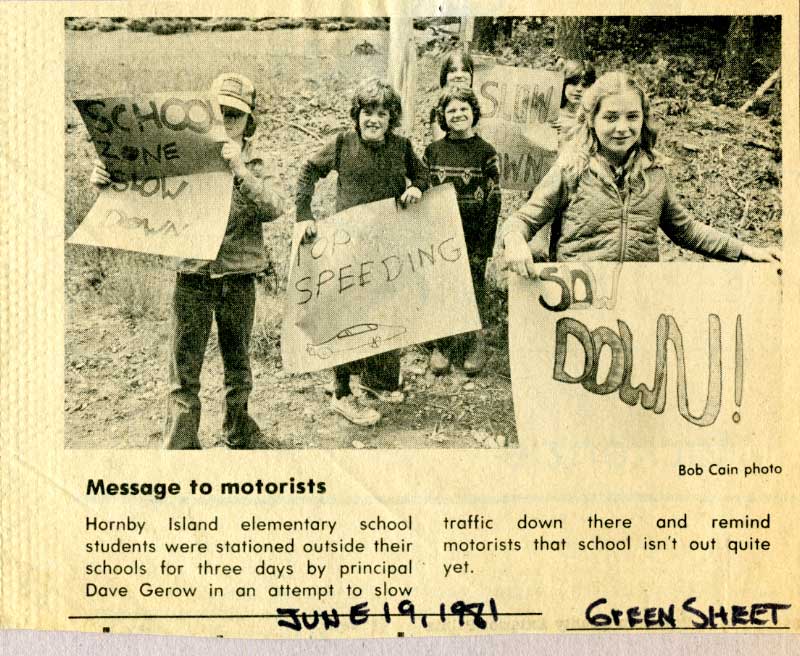 SCHOOL
ZONE
SLOW
DOWN
TOP
SPEEDING
SLOW
OWN
SLOW
DOWN!
Bob Cain photo
Message to motorists
Hornby Island elementary school
students were stationed outside their
schools for three days by principal
Dave Gerow in an attempt to slow
traffic down there and remind
motorists that school isn't out quite
yet.
JUNE 19, 1981
GREEN SHEET